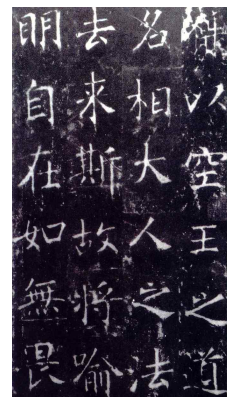 以空王之道
名相大人之法
去来斯故将喻
眀自在如無畏